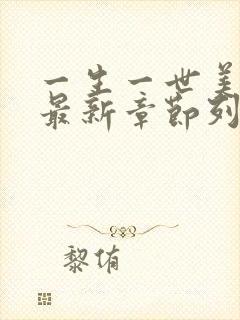 一生一世美
最新章节列
黎侑